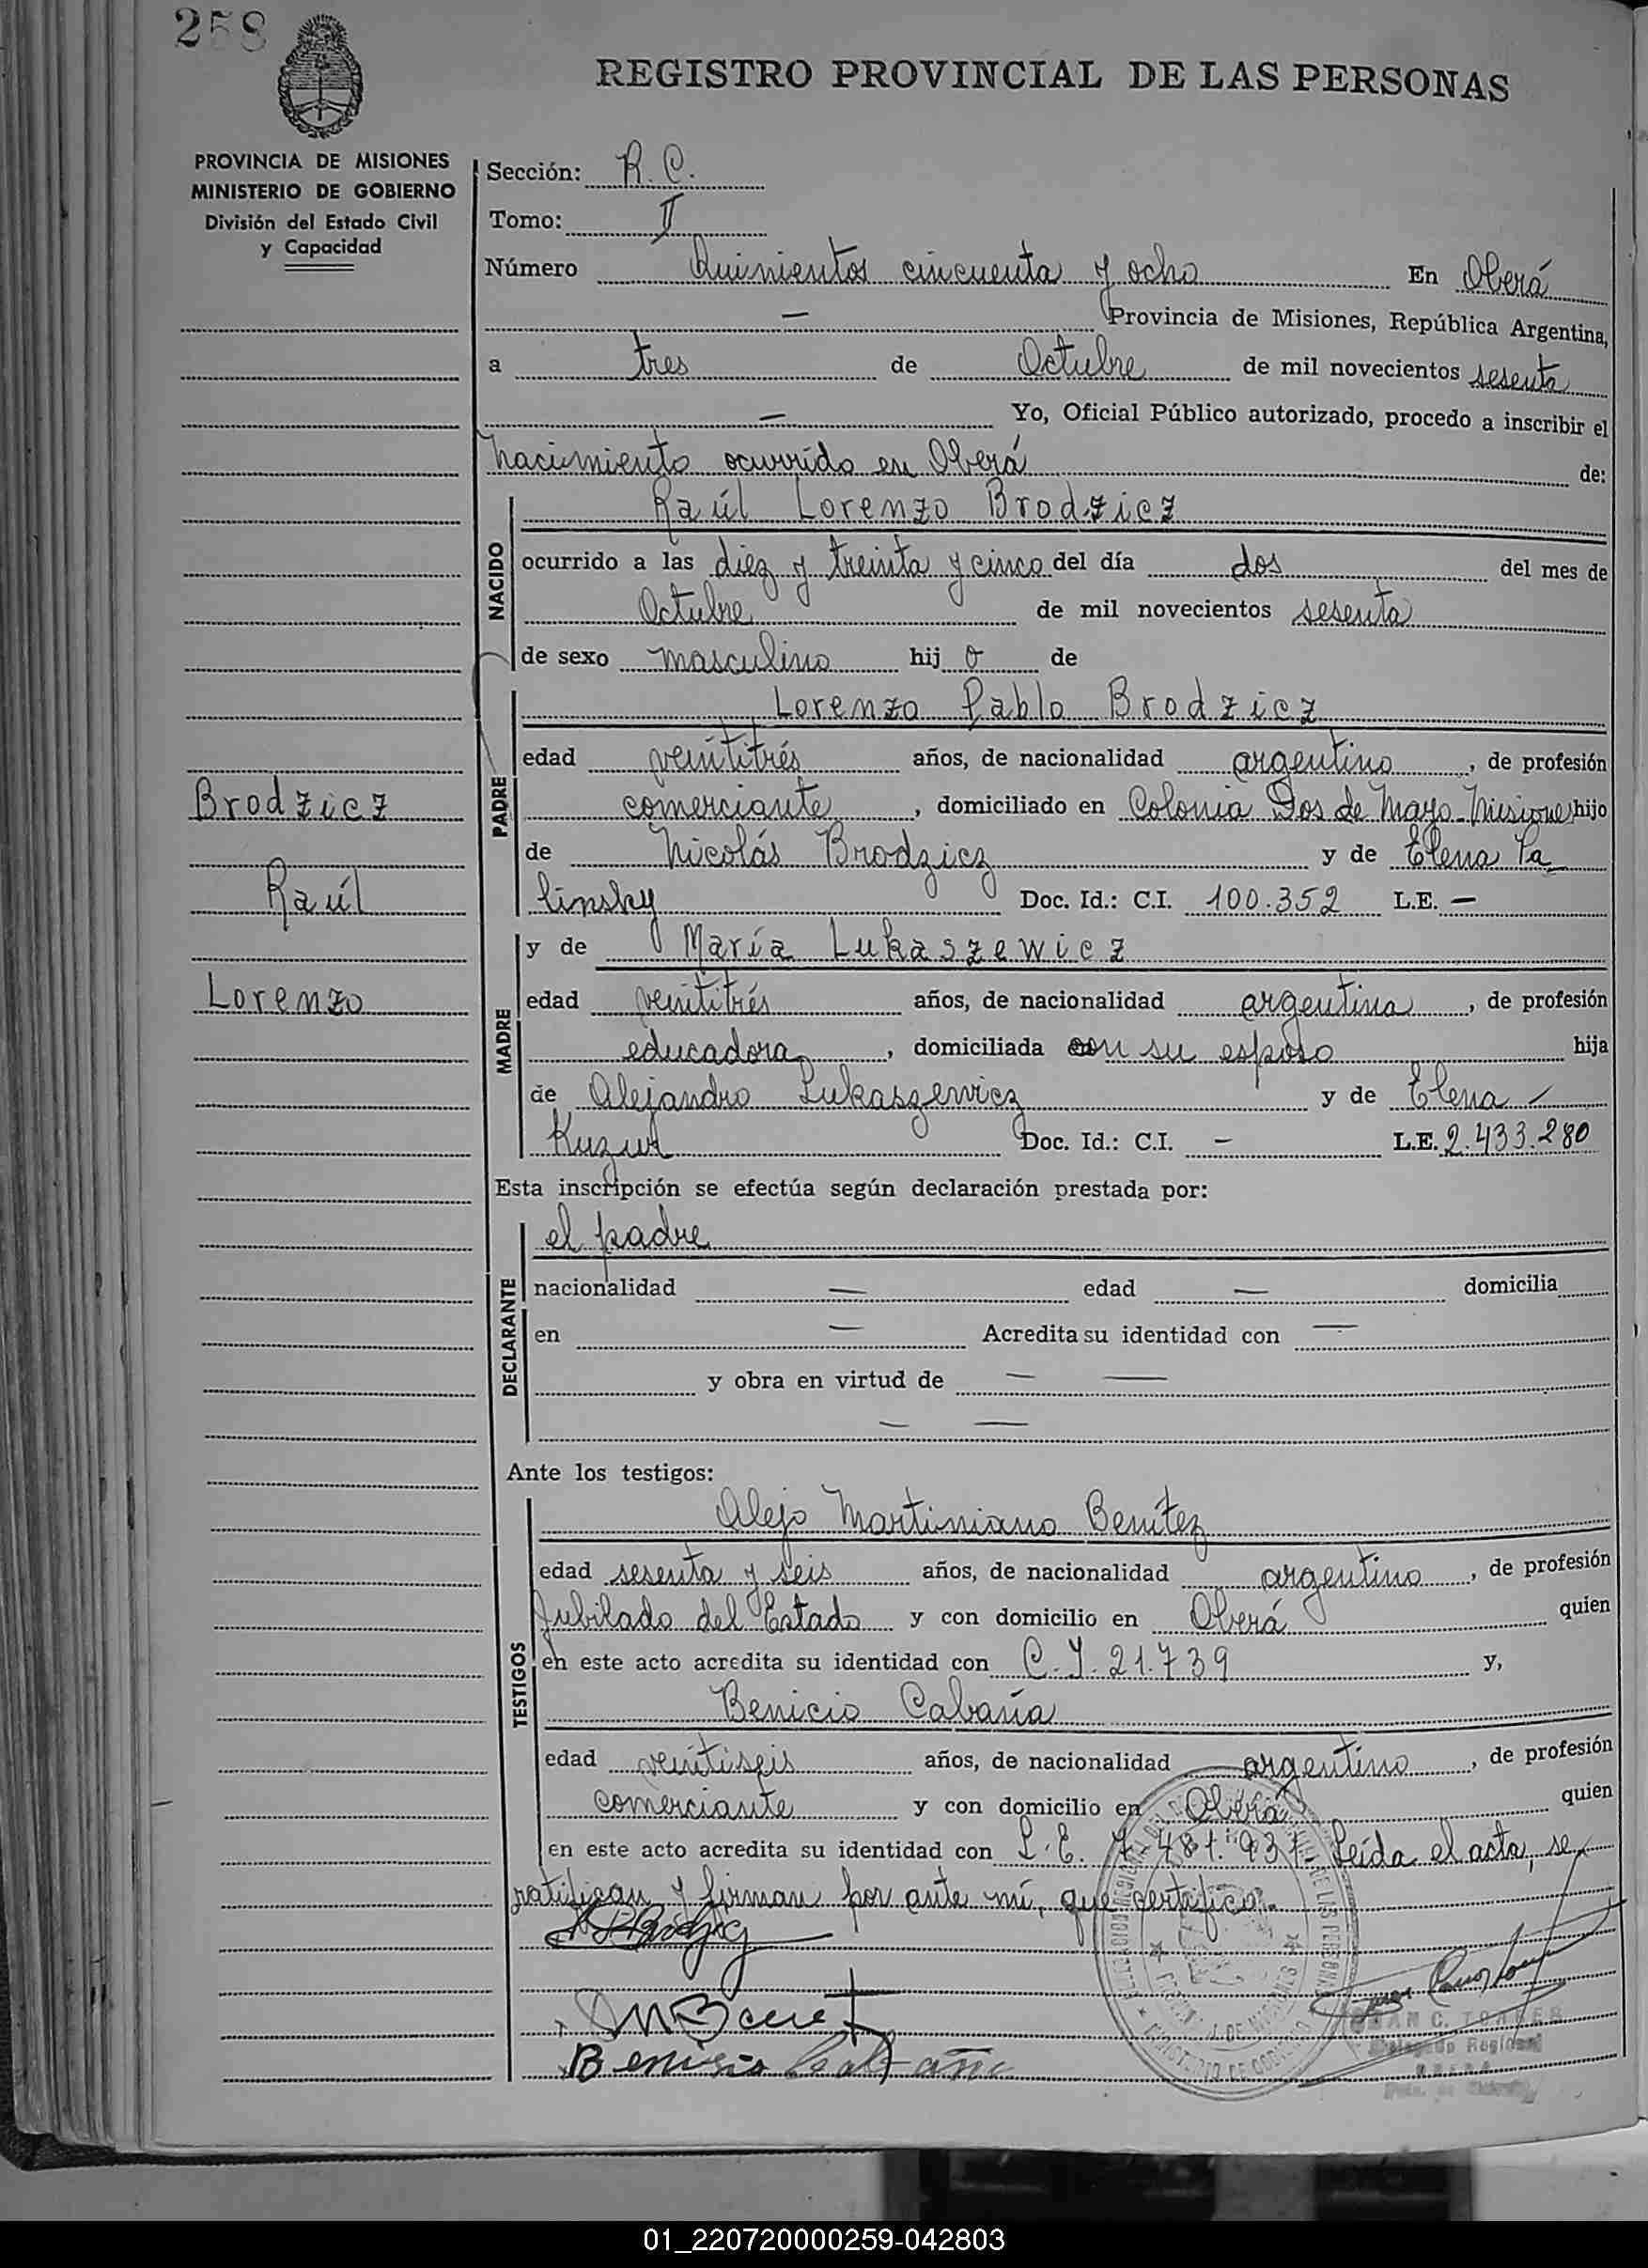 258
REGISTRO PROVINCIAL DE LAS PERSONAS
PROVINCIA DE MISIONES
MINISTERIO DE GOBIERNO
División del Estado Civil
y Capacidad
Sección: R. C.
Tomo: II
Número Quinientos cincuenta y ocho En Oberá
— Provincia de Misiones, República Argentina,
a tres de Octubre de mil novecientos sesenta
— Yo, Oficial Público autorizado, procedo a inscribir el
nacimiento ocurrido en Oberá de:
NACIDO
Raúl Lorenzo Brodzicz
ocurrido a las diez y treinta y cinco del día dos del mes de
Octubre de mil novecientos sesenta
de sexo masculino hij o de
PADRE
Lorenzo Pablo Brodzicz
edad veintitrés años, de nacionalidad argentino, de profesión
comerciante, domiciliado en Colonia Dos de Mayo-Misiones hijo
de Nicolás Brodzicz y de Elena Pa
linsky Doc. Id.: C.I. 100.352 L.E. —
Brodzicz
Raúl
Lorenzo
MADRE
y de María Lukaszewicz
edad veintitrés años, de nacionalidad argentina, de profesión
educadora, domiciliada con su esposo hija
de Alejandro Lukaszewicz y de Elena —
Kuzuk Doc. Id.: C.I. — L.E. 2.433.280
Esta inscripción se efectúa según declaración prestada por:
DECLARANTE
el padre
nacionalidad — edad — domicilia
en — Acredita su identidad con —
y obra en virtud de — —
— —
Ante los testigos:
TESTIGOS
Alejo Martiniano Benítez
edad sesenta y seis años, de nacionalidad argentino, de profesión
Jubilado del Estado y con domicilio en Oberá quien
en este acto acredita su identidad con C.I. 21.739 y,
Benicio Cabaña
edad veintiseis años, de nacionalidad argentino, de profesión
comerciante y con domicilio en Oberá quien
en este acto acredita su identidad con L.E. 7.481.937. Leída el acta, se
ratifican y firman por ante mí, que certifico.-
Benicio Cabaña
JUAN C. TORRES
Delegado Regional
OBERA
01_220720000259-042803